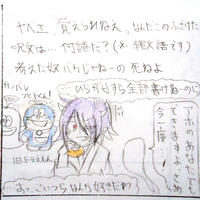 ヤベエ、覚えられねえ、なんだこのふざけた
呪文は…何語だ？(※縄文語です)
考えた奴バカじゃねーの 死ねよ
…ひらがなすら全部書けねーのに
アホのあなたでも
できますよ、さあ
今一度
ガンバレ
旧ドラえもん
…おっ、こいつらなんか好きだわ